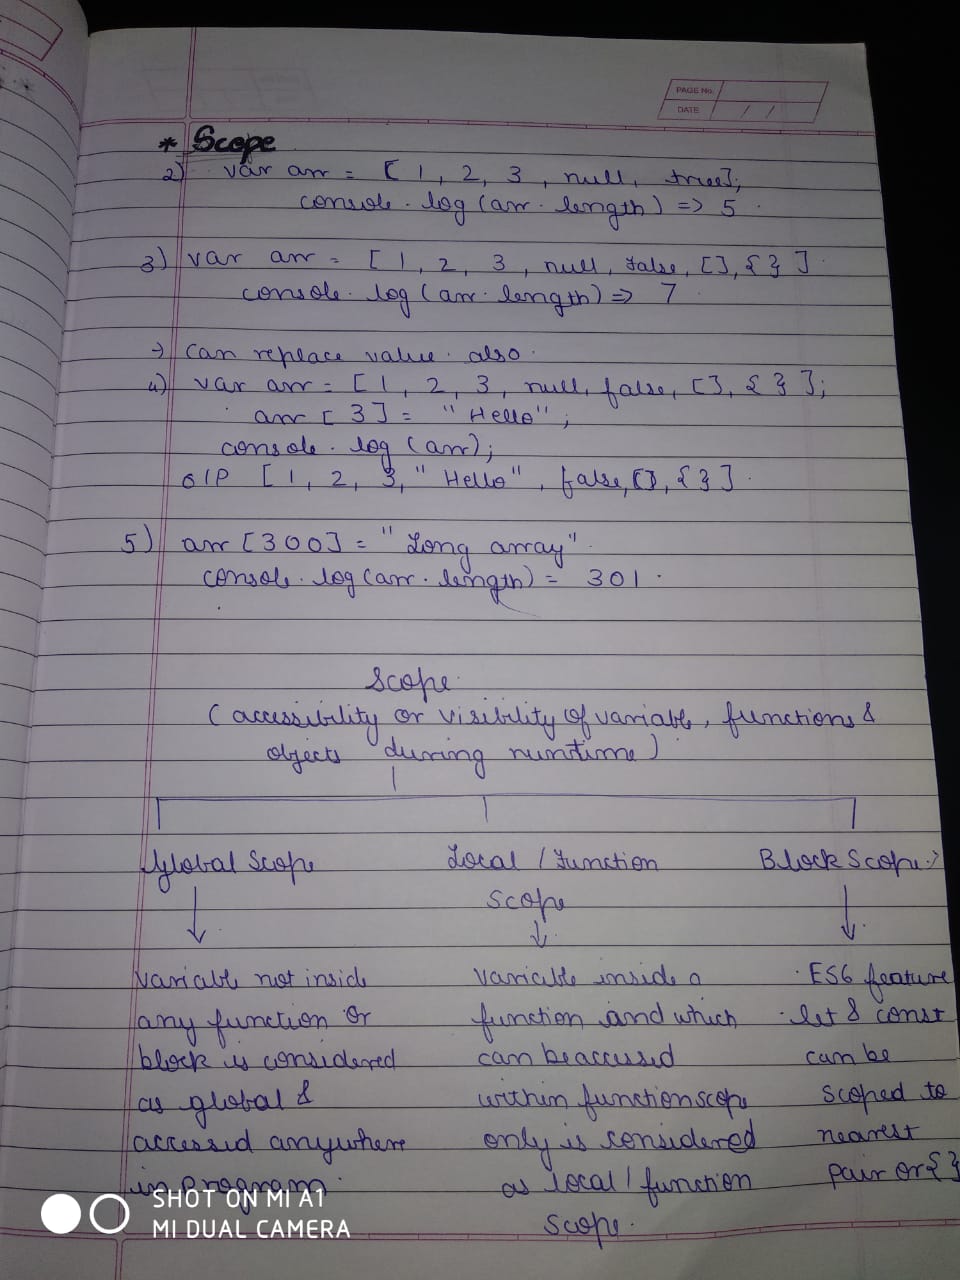 PAGE No.
DATE / /
* Scope
2) var arr = [ 1, 2, 3, null, true];
console.log(arr.length) => 5.
3) var arr = [ 1, 2, 3, null, false, [], { } ].
console.log(arr.length) => 7.
→ can replace value also.
4) var arr = [ 1, 2, 3, null, false, [], { } ];
arr [ 3 ] = "Hello";
console.log (arr);
O/P [ 1, 2, 3, "Hello", false, [], { } ].
5) arr [300] = "Long array".
console.log(arr.length) = 301.
Scope
( accessibility or visibility of variable, functions &
objects during runtime )
Global Scope
Local / Function
Scope
Block Scope :→
Variable not inside
any function or
block is considered
as global &
accessed anywhere
in program.
Variable inside a
function and which
can be accessed
within function scope
only is considered
as local / function
scope.
. ES6 feature
. let & const
can be
scoped to
nearest
pair or { }
SHOT ON MI A1
MI DUAL CAMERA